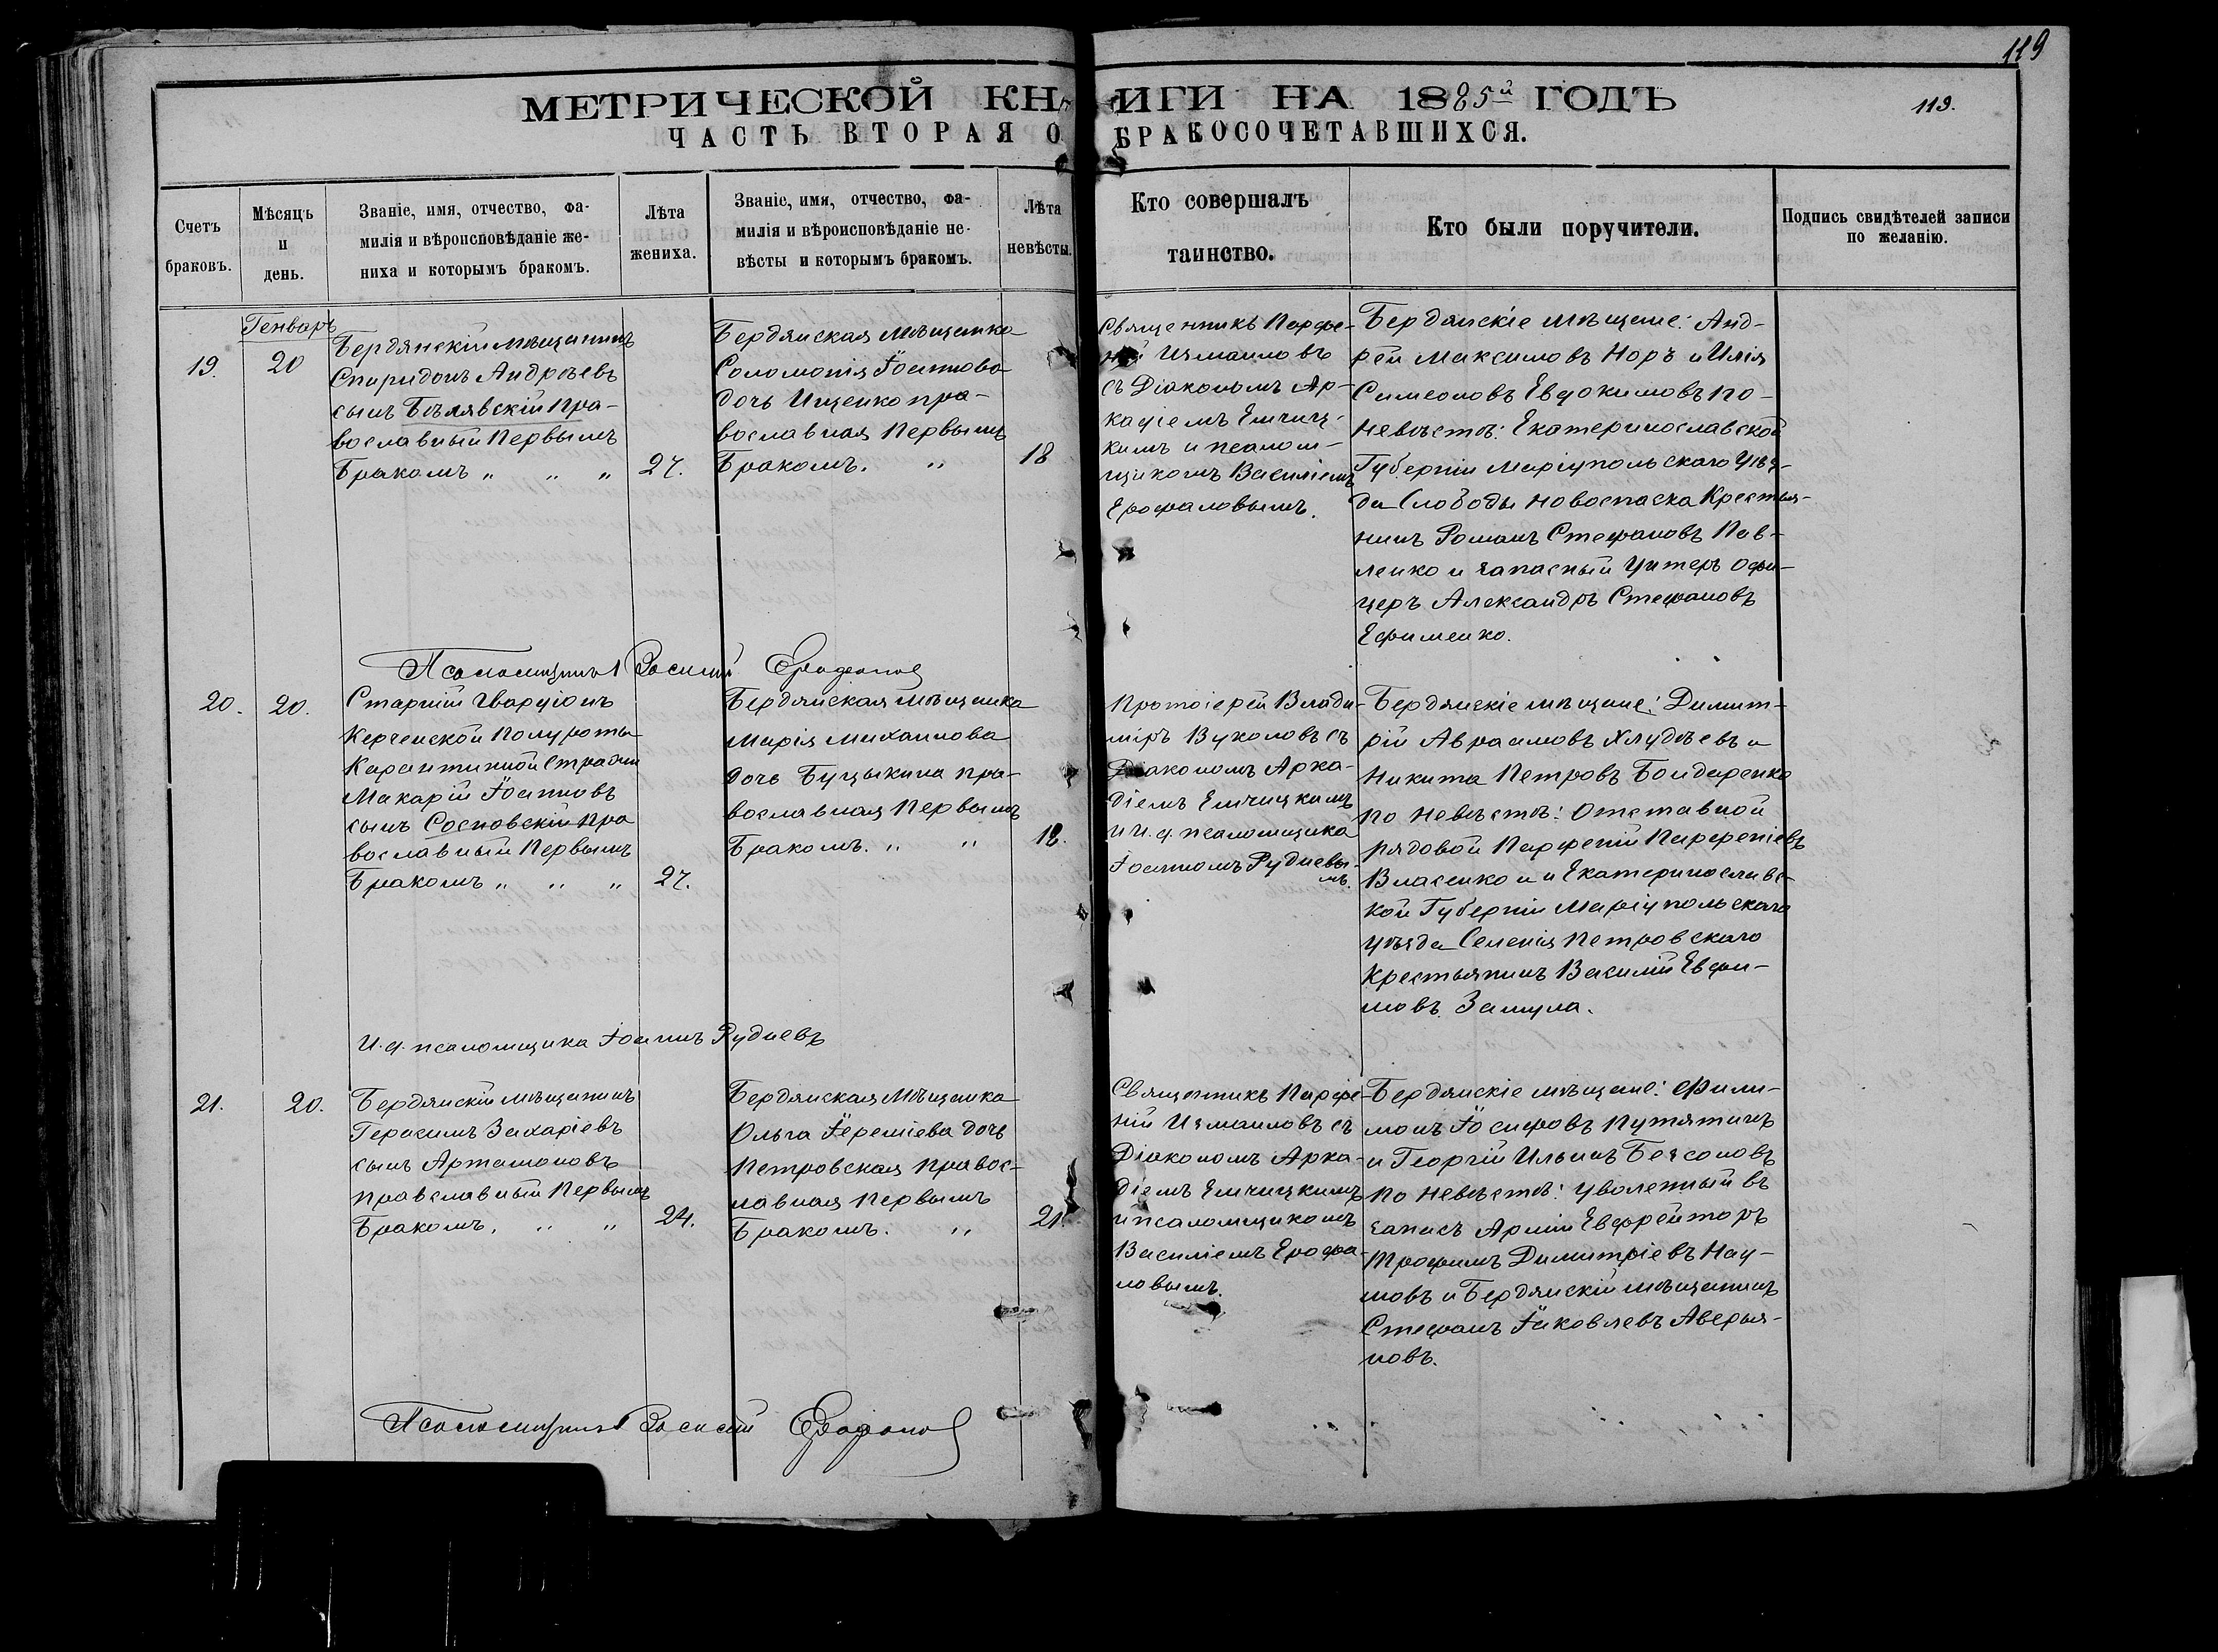 119
МЕТРИЧЕСКОЙ КНИГИ НА 1885й ГОДЪ
119.
ЧАСТЬ ВТОРАЯ О БРАКОСОЧЕТАВШИХСЯ.
Счетъ
браковъ.
Мѣсяцъ
и
день.
Званіе, имя, отчество, фа-
милія и вѣроисповѣданіе же-
ниха и которымъ бракомъ.
Лѣта
жениха.
Званіе, имя, отчество, фа-
милія и вѣроисповѣданіе не-
вѣсты и которымъ бракомъ.
Лѣта
невѣсты.
Кто совершалъ
таинство.
Кто были поручители.
Подпись свидѣтелей записи
по желанію.
19.
Генварь
20
Бердянскій мѣщанинъ
Спиридонъ Андреевъ
сынъ Бѣлявскій пра-
вославный Первымъ
Бракомъ „ „ „
27.
Бердянская мѣщанка
Соломонія Іоаннова
дочь Ищенко пра-
вославная Первымъ
Бракомъ. „
18
Священникъ Парфе-
ній Измаиловъ
съ Діакономъ Ар-
кадіемъ Емчиц-
кимъ и псалом-
щикомъ Василіемъ
Ерофаловымъ.
Бердянскіе мѣщане: Анд-
рей Максимовъ Норъ и Илія
Симеоновъ Евдокимовъ по-
Невѣстѣ: Екатеринославской
Губерніи Маріупольскаго Уѣз-
да Слободы Новоспаска Крестья-
нинъ Романъ Стефановъ Пав-
ленко и запасный Унтеръ офи-
церъ Александръ Стефановъ
Ефименко.
Псаломщикъ Василій Ерофаловъ
20.
20.
Старшій Гвардіонъ
Керченской Полуроты
Карантинной Стражи
Макарій Іоанновъ
сынъ Сосновскій пра
вославный Первымъ
Бракомъ „ „ „
27.
Бердянская мѣщанка
Марія Михаилова
дочь Буцыкина пра-
вославная Первымъ
Бракомъ. „ „
18.
Протоіерей Влади-
миръ Вуколовъ съ
Діакономъ Арка-
діемъ Емчицкимъ
и И. д. псаломщика
Іоанномъ Рудневы-
мъ.
Бердянскіе мѣщане: Димит-
рій Авраамовъ Хлудѣевъ и
Никита Петровъ Бондаренко
по Невѣстѣ: Отставной
рядовой Парфеній Парфеніевъ
Власенко и и Екатеринославс-
кой Губерніи Маріупольскаго
уѣзда Селенія Петровскаго
Крестьянинъ Василій Евфи-
мовъ Замула.
И. д. псаломщика Іоаннъ Рудневъ
21.
20.
Бердянскій мѣщанинъ
Герасимъ Захаріевъ
сынъ Артамоновъ
правславный Первымъ
Бракомъ, „ „
24.
Бердянская Мѣщанка
Ольга Іереміева дочь
Петровская правос-
лавная Первымъ
Бракомъ. „
21.
Священникъ Парфе-
ній Измаиловъ съ
Діакономъ Арка-
діемъ Емчицкимъ
и псаломщикомъ
Василіемъ Ерофа-
ловымъ.
Бердянскіе мѣщане: Фили-
монъ Іосифовъ Путятинъ
и Георгій Ильинъ Безсоновъ
по Невѣстѣ: уволенный въ
запасъ Арміи Евфрейторъ
Трофимъ Димитріевъ Нау-
мовъ и Бердянскій мѣщанинъ
Стефанъ Іаковлевъ Аверья-
новъ.
Псаломщикъ Василій Ерофаловъ